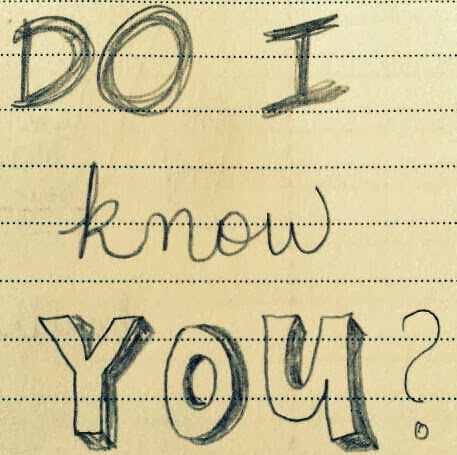 DO I
know
YOU?